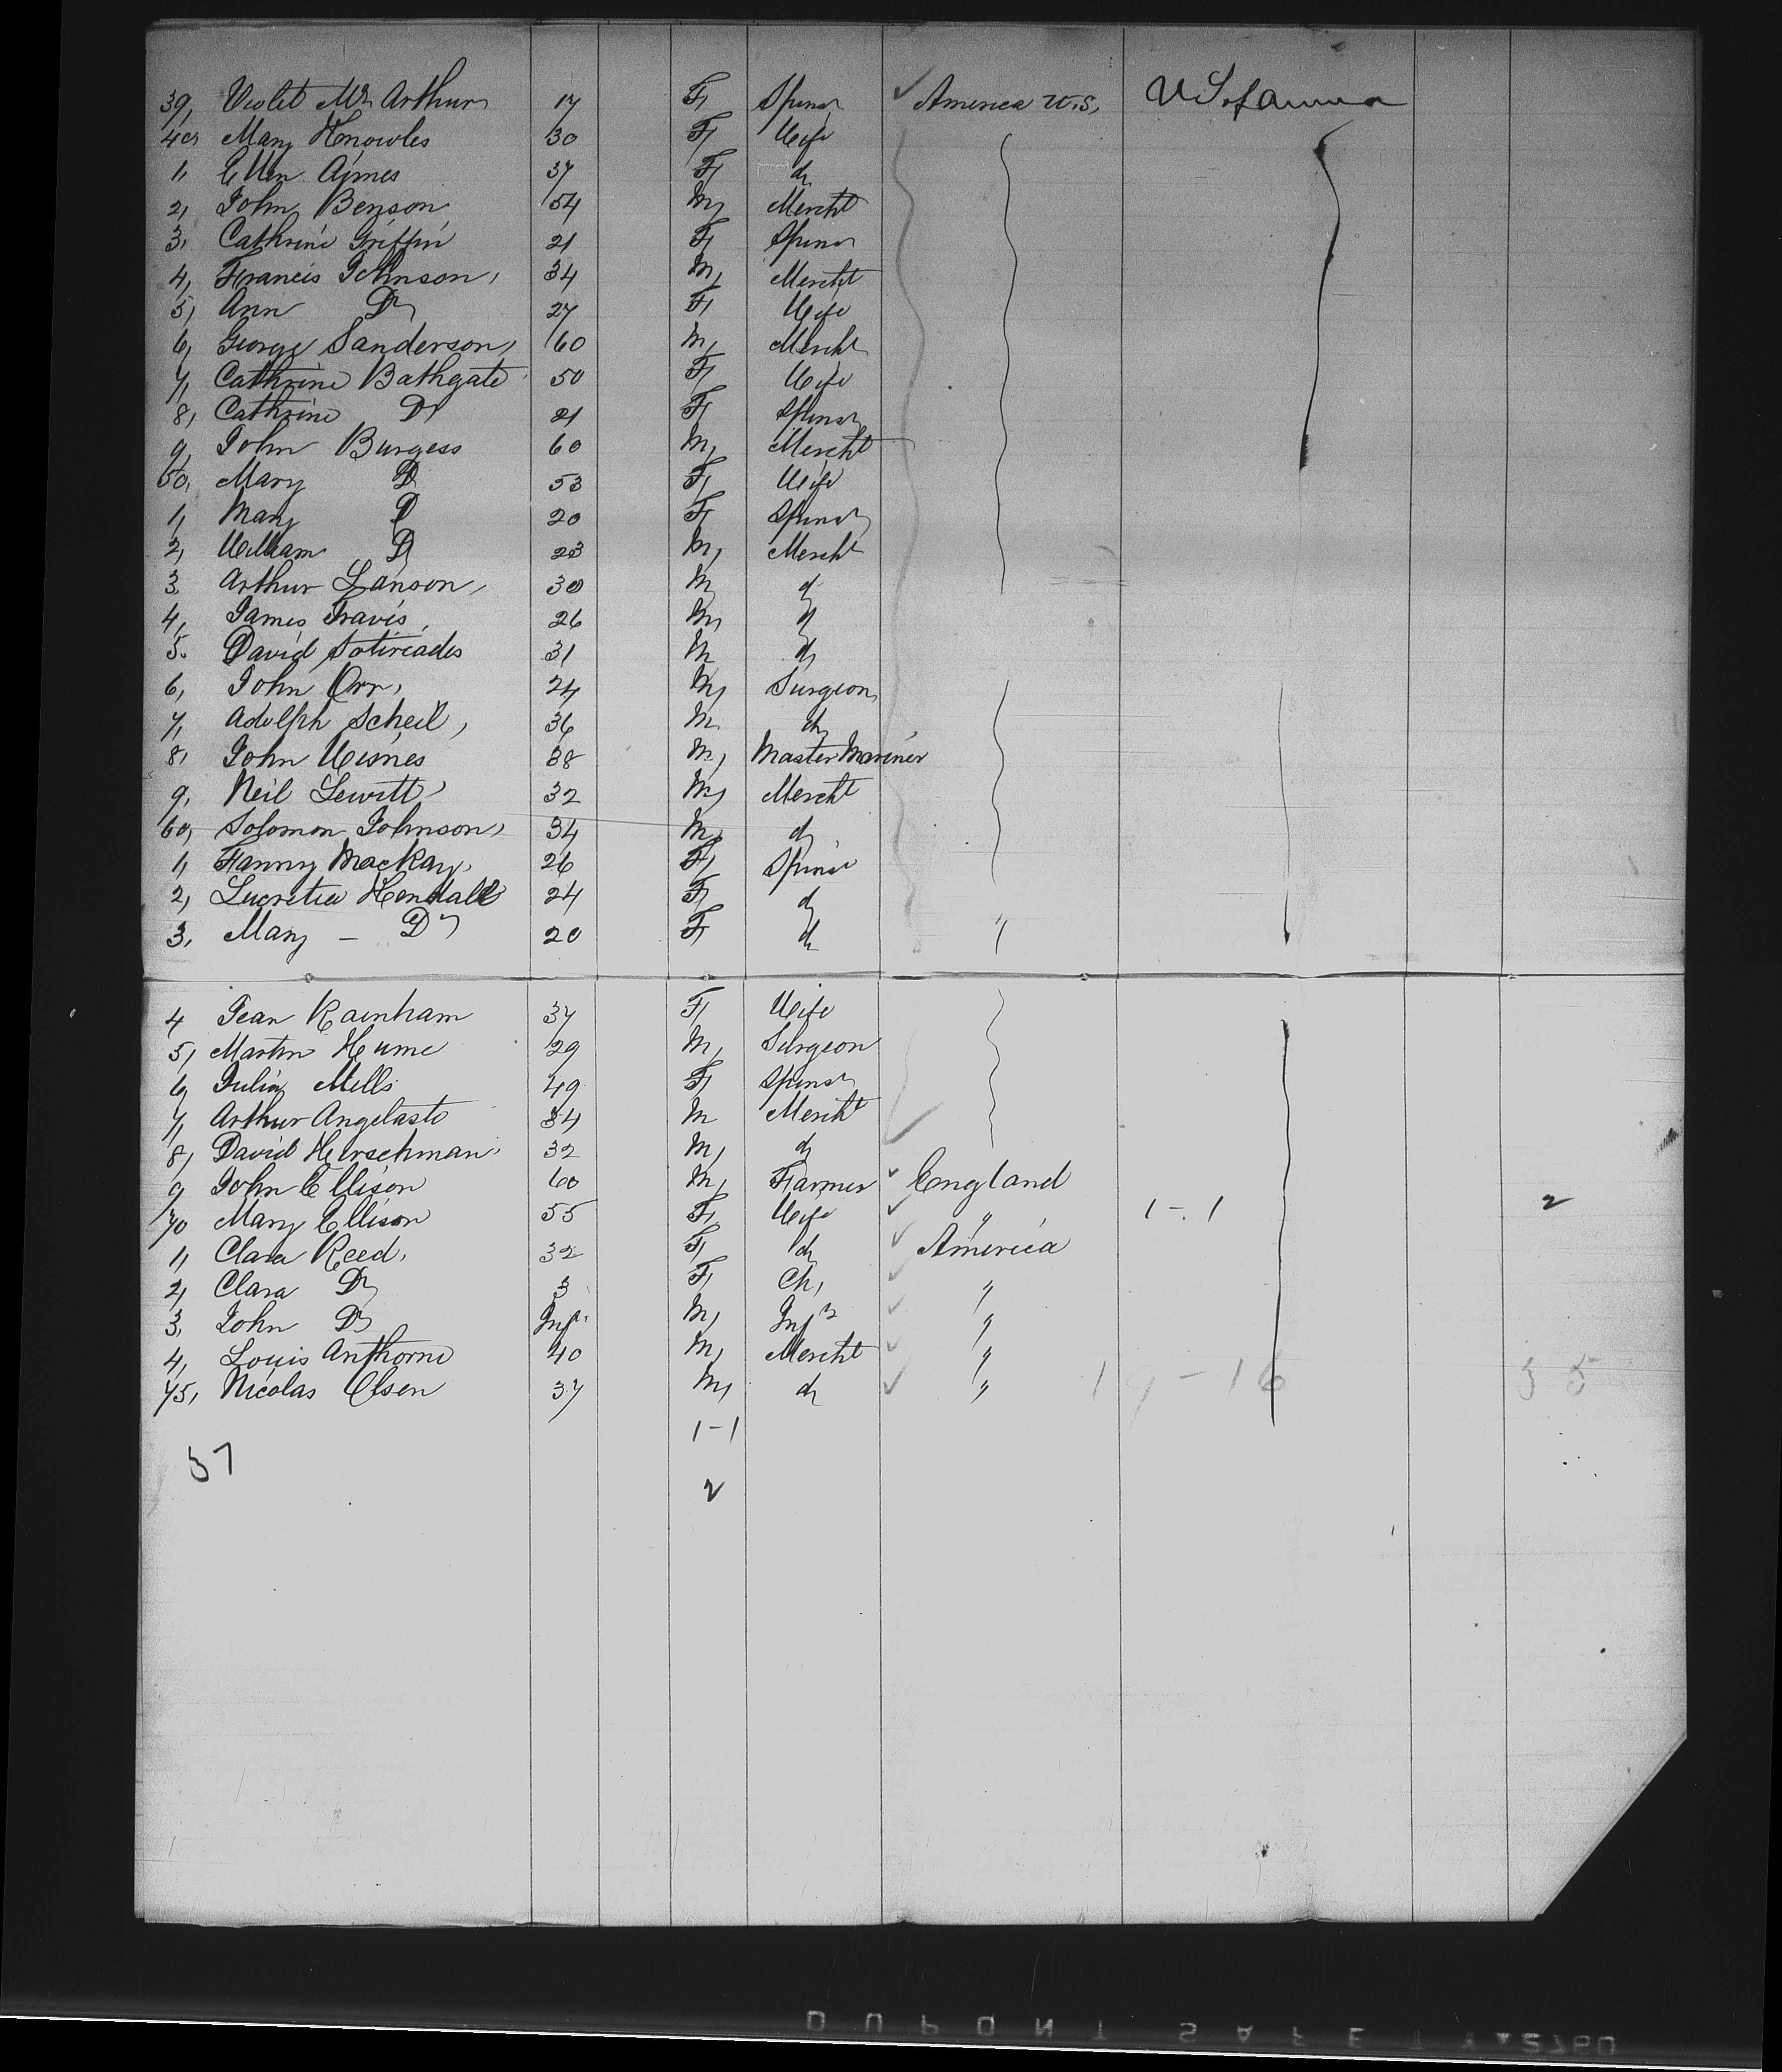 39, Violet Mc Arthur 17 F, Spinsr America U.S, U S of America
40, Mary Knowles 30 F, Wife
1, Ellen Aimes 37 F, do
2, John Benson 54 M, Mercht
3, Cathrine Griffin 21 F, Spinsr
4, Francis Johnson, 34 M, Mercht
5, Ann Do 27 F, Wife
6, George Sanderson, 60 M, Mercht
7, Cathrine Bathgate 50 F, Wife
8, Cathrine Do 21 F, Spinsr
9, John Burgess 60 M, Mercht
50, Mary Do 53 F, Wife
1, Mary Do 20 F, Spinsr
2, William Do 23 M, Mercht
3. Arthur Lanson, 30 M, do
4, James Travis, 26 M, do
5. David Sotiriades 31 M do
6, John Orr, 24 M, Surgeon
7, Adolph Scheil, 36 M. do
8, John Weines 38 M, Master Mariner
9, Neil Lewitt, 32 M, Mercht
60, Solomon Johnson, 34 M, do
1, Fanny MacKay, 26 F, Spinsr
2, Lucretia Kendall 24 F, do
3, Mary – Do 20 F, do "
4 Jean Rainham 37 F, Wife
5, Martin Hume 29 M, Surgeon
6, Julia Mills 49 F, Spinsr
7, Arthur Angelasto 34 M Mercht
8, David Hirschman, 32 M, do
9 John Ellison 60 M, Farmer England
70 Mary Ellison 55 F, Wife " 1-.1 2
1, Clara Reed, 32 F, do America
2, Clara Do 3 F, Ch, "
3, John Do Inft M, Inft "
4, Louis Anthorne 40 M, Mercht "
75, Nicolas Olsen 37 M, do " 19-16 35
1-1
37
2
DUPONT SAFETY